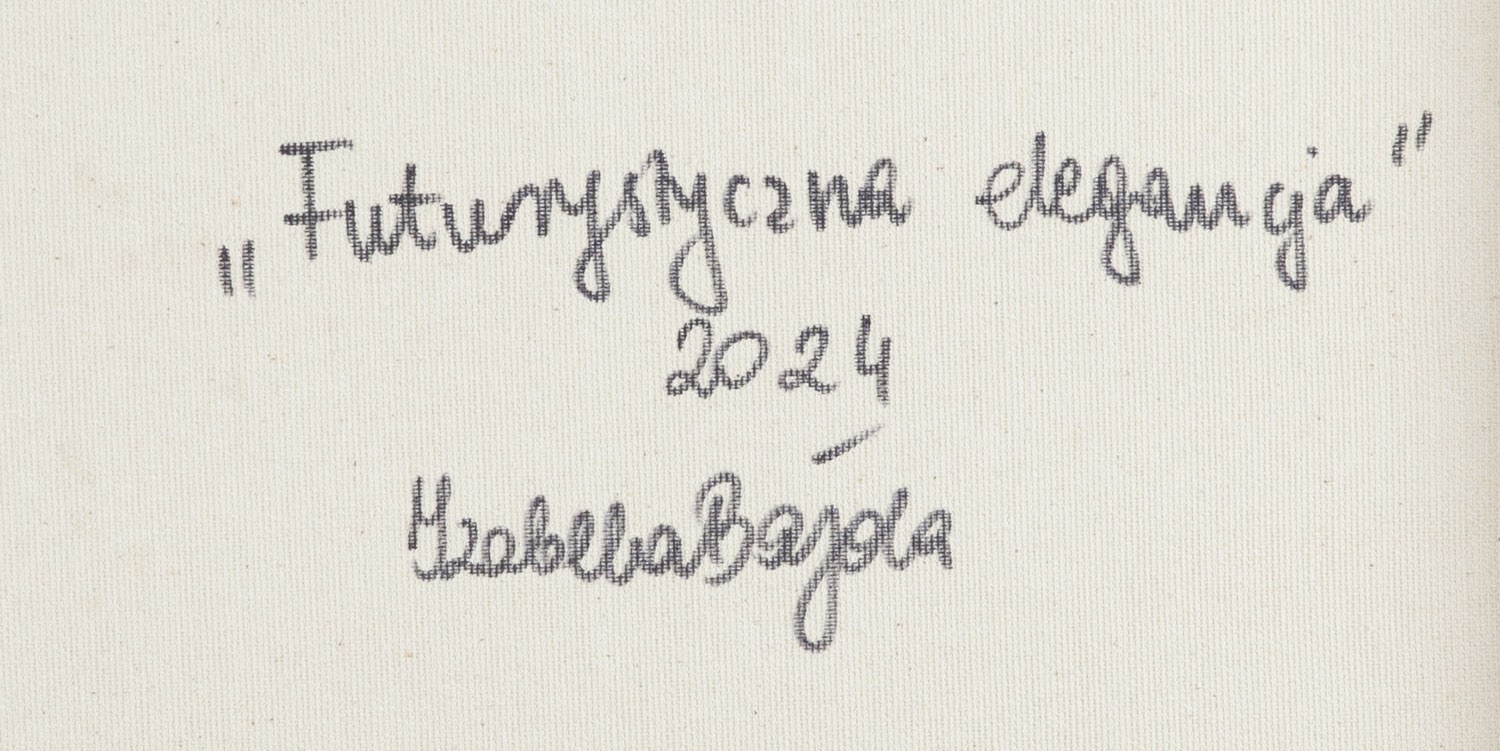 „Futurystyczna elegancja"
2024
Izabella Bajda